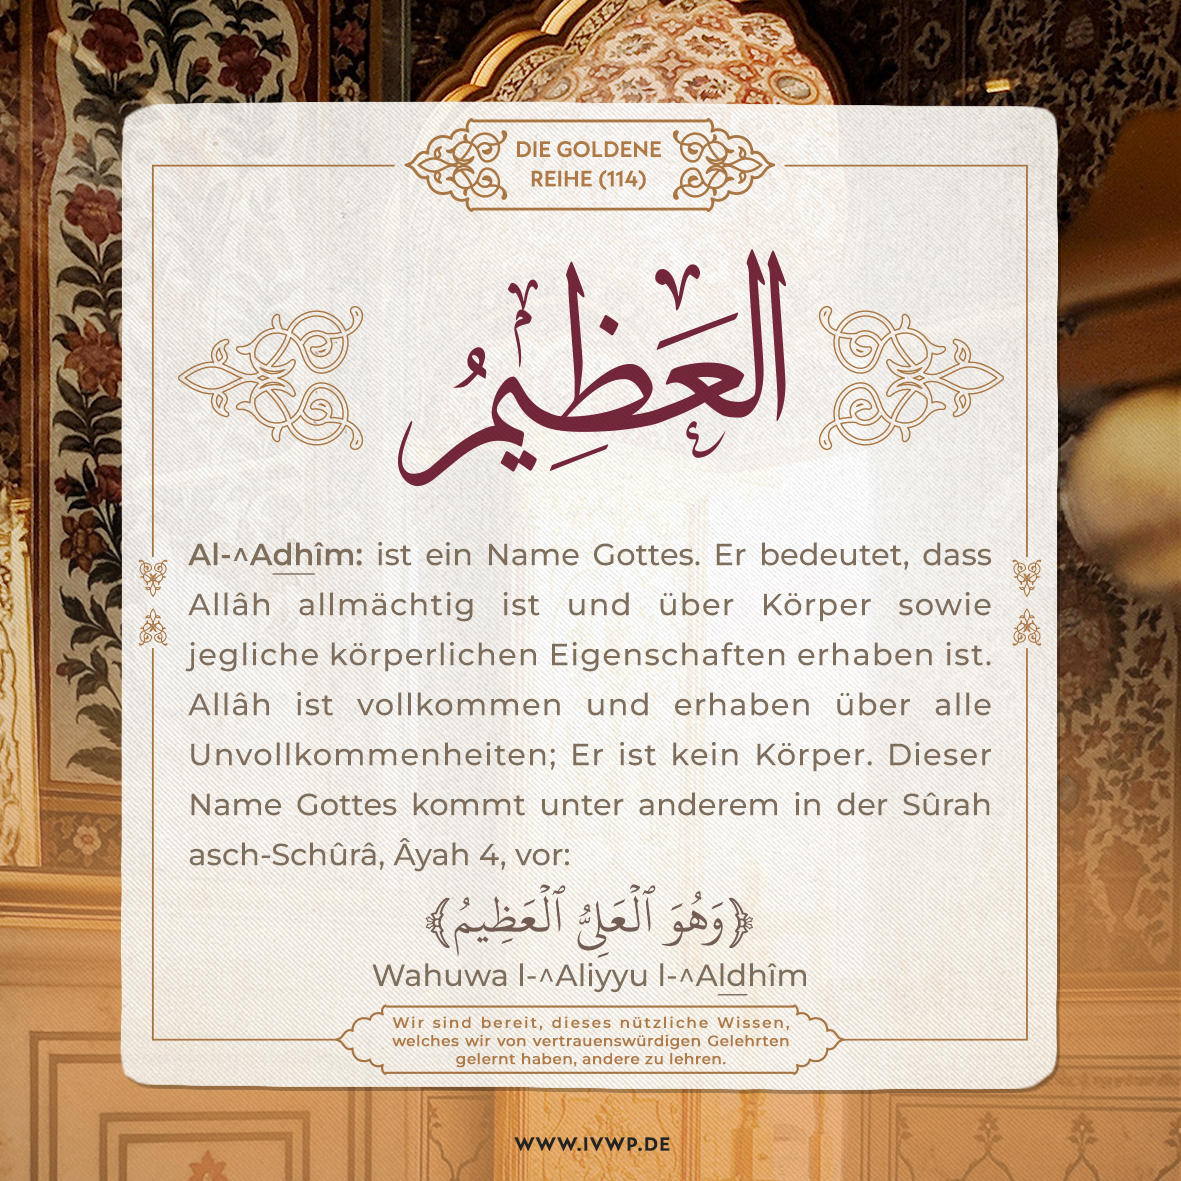 DIE GOLDENE
REIHE (114)
العَظِيمُ
Al-^Adhîm: ist ein Name Gottes. Er bedeutet, dass
Allâh allmächtig ist und über Körper sowie
jegliche körperlichen Eigenschaften erhaben ist.
Allâh ist vollkommen und erhaben über alle
Unvollkommenheiten; Er ist kein Körper. Dieser
Name Gottes kommt unter anderem in der Sûrah
asch-Schûrâ, Âyah 4, vor:
﴿وَهُوَ ٱلۡعَلِيُّ ٱلۡعَظِيمُ﴾
Wahuwa l-^Aliyyu l-^Aldhîm
Wir sind bereit, dieses nützliche Wissen,
welches wir von vertrauenswürdigen Gelehrten
gelernt haben, andere zu lehren.
WWW.IVWP.DE